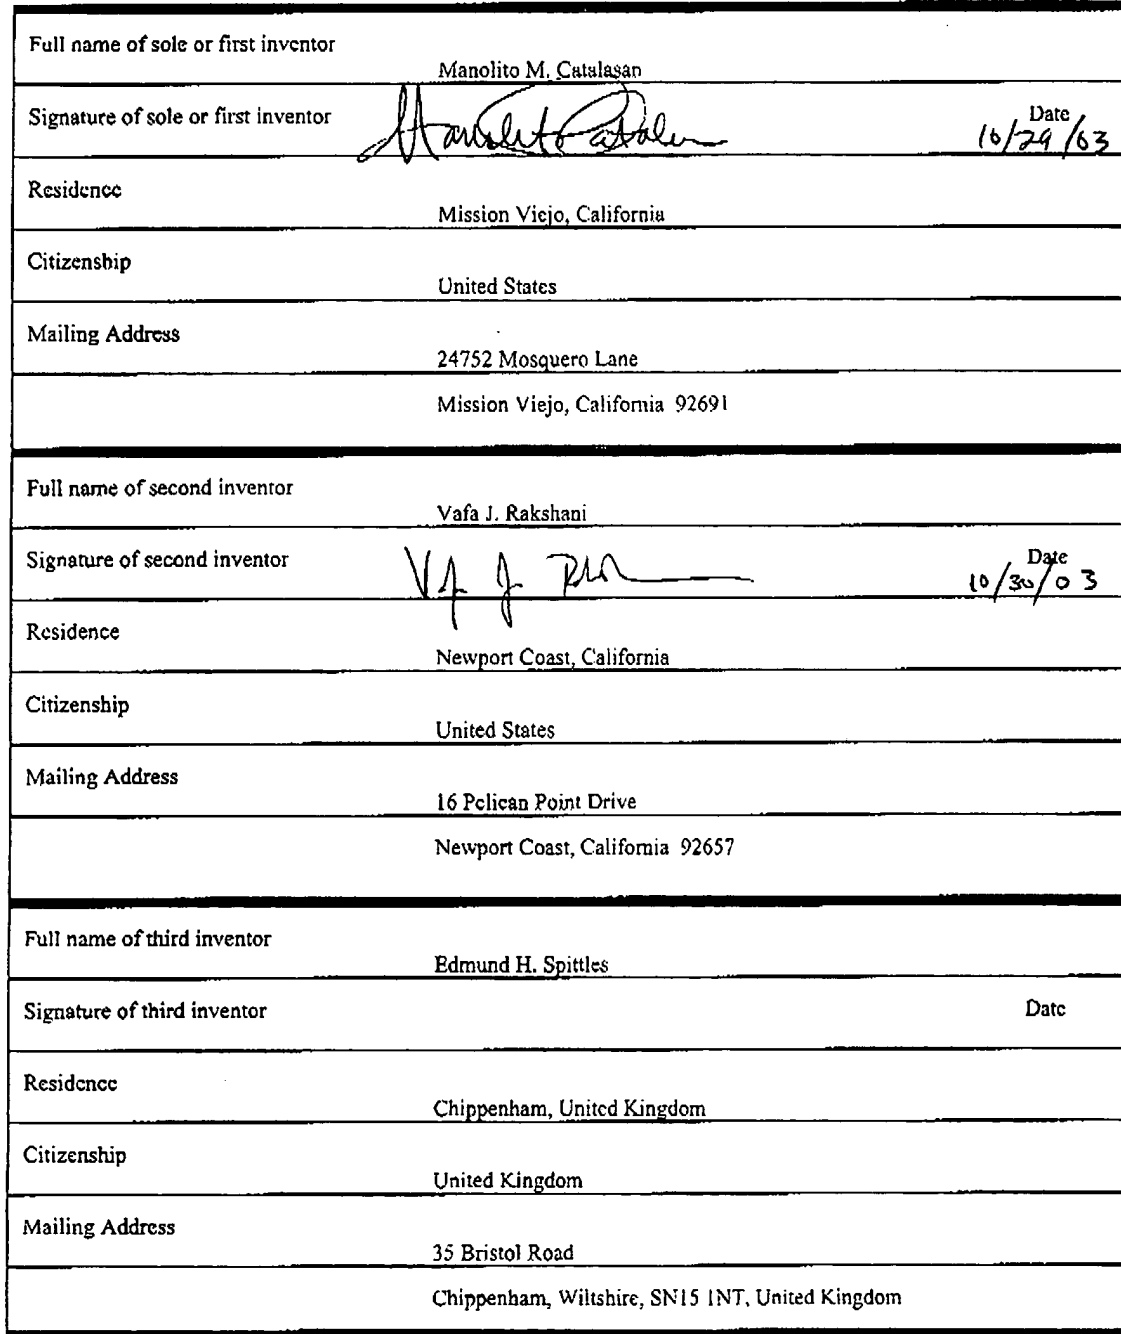 Full name of sole or first inventor
Manolito M. Catalasan
Signature of sole or first inventor
Date
10/29/03
Residence
Mission Viejo, California
Citizenship
United States
Mailing Address
24752 Mosquero Lane
Mission Viejo, California 92691
Full name of second inventor
Vafa J. Rakshani
Signature of second inventor
Date
10/30/03
Residence
Newport Coast, California
Citizenship
United States
Mailing Address
16 Pelican Point Drive
Newport Coast, California 92657
Full name of third inventor
Edmund H. Spittles
Signature of third inventor Date
Residence
Chippenham, United Kingdom
Citizenship
United Kingdom
Mailing Address
35 Bristol Road
Chippenham, Wiltshire, SN15 1NT, United Kingdom